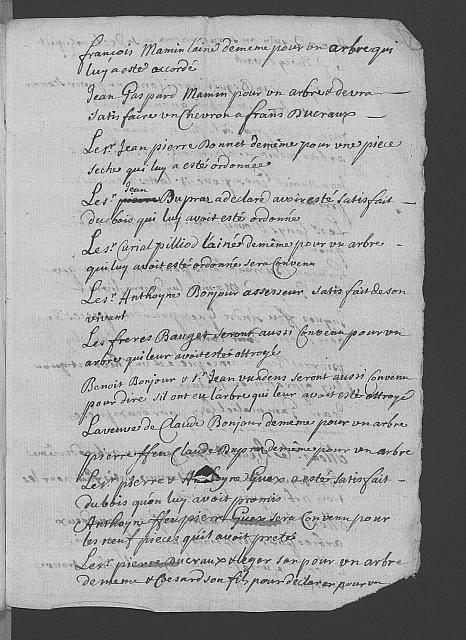 françois Mamin laine dememe pour un arbre qui
luy a esté accordé
Jean Gaspard Mamin pour un arbre & devra
satisfaire un Chevron a frañs Ducraux
Le sr. Jean pierre Bonnet demême pour une piece
seche qui luy a esté ordonnée
Jean
Le sr. pierre Dupraz a declaré avoir esté satisfait
du bois qui luy avoit esté ordonné
Le sr. pilliod lainé demême pour un arbre
qui luy avoit esté ordonné sera Convenu
Le sr. Anthoyne Bonjour assesseur, satisfait de son
vivant
Les freres Bauget seront aussi Convenu pour un
arbre qui leur avoit esté ottroyé
Benoit Bonjour & sr. Jean seront aussi Convenu
pour dire sil ont eu larbre qui leur avoit esté ottroyé
La veuve de Claude Bonjour demême pour un arbre
pierre ffeu Claude Dupraz demême pour un arbre
Le sr. pierre & Anthoyne Guex a esté satisfait
du bois quon luy avoit promis
Anthoyne ffeu pierre Guex sera Convenu pour
les neuf pieces quil avoit preté
Le sr. pierre Ducraux & leger son pour un arbre
demême & son fils, pour declarer pour un